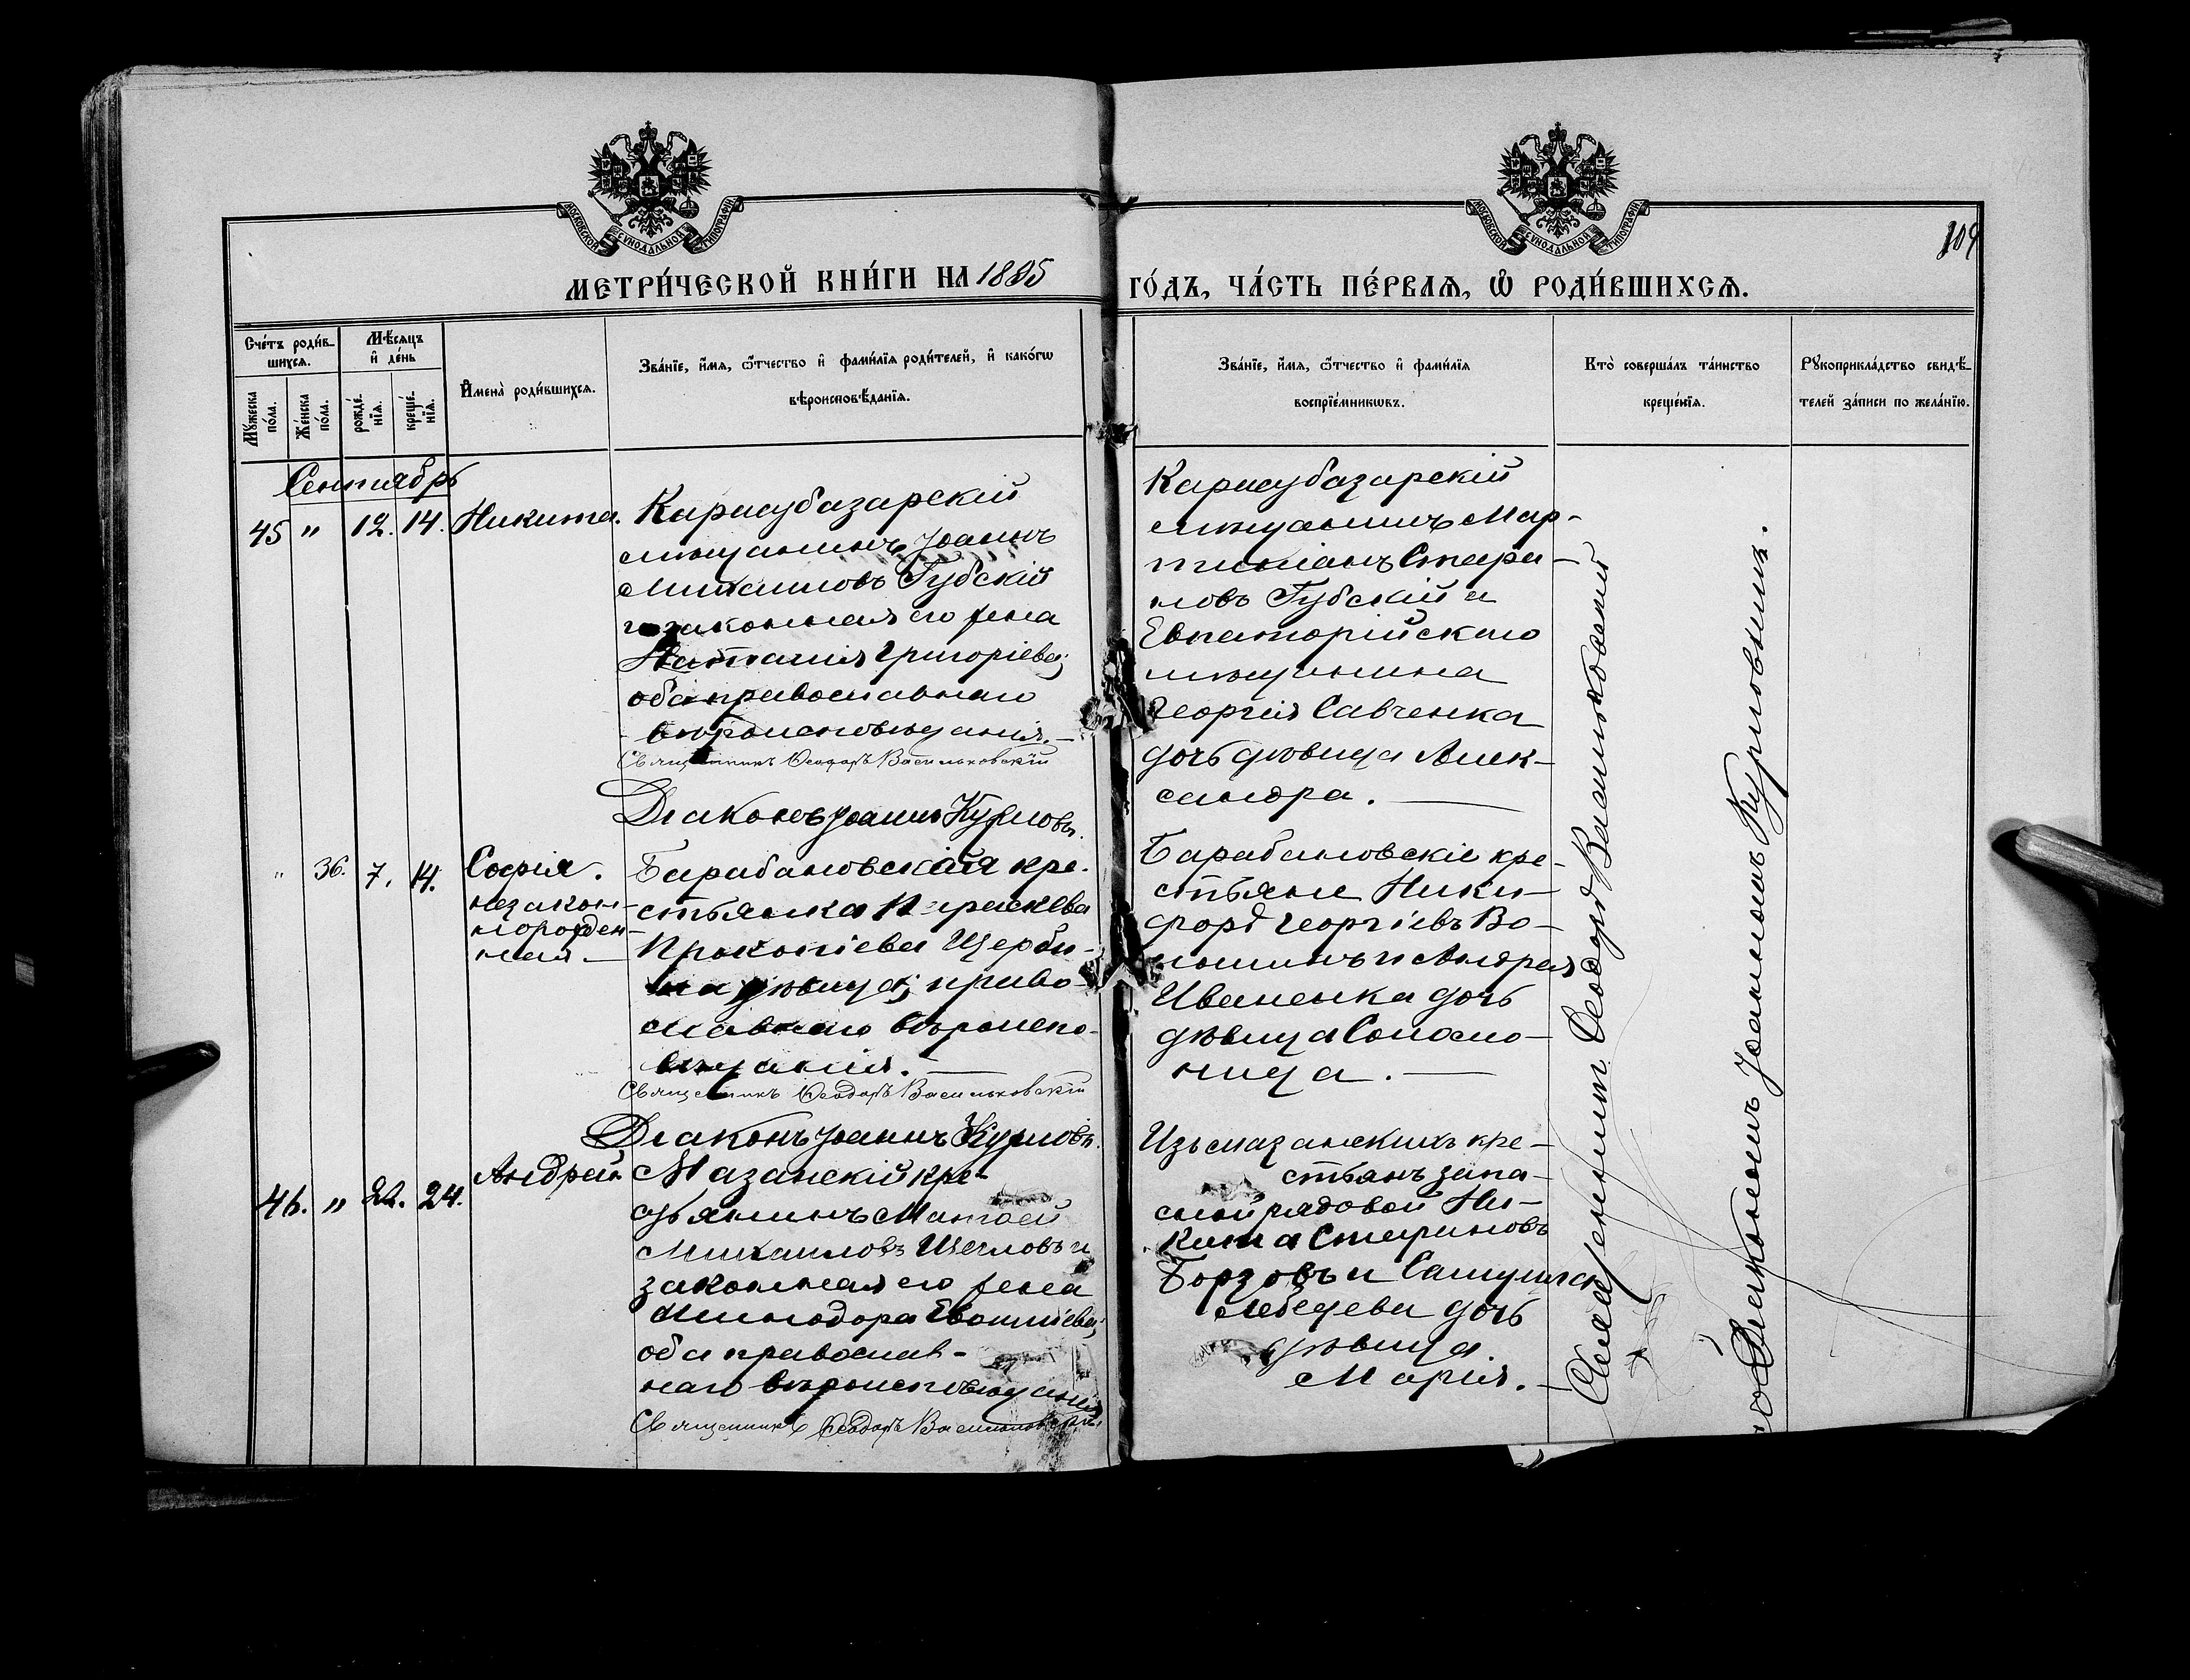 109
МОСКОВСКОЙ СѴНОДАЛЬНОЙ ТИПОГРАФІИ
МОСКОВСКОЙ СѴНОДАЛЬНОЙ ТИПОГРАФІИ
МЕТРИ́ЧЕСКОЙ КНИ́ГИ НА 1895 ГО́ДЪ, ЧА́СТЬ ПЕ́РВАѦ, Ѡ҆ РОДИ́ВШИХСѦ.
Сче́тъ роди́в-
шихся.
Мꙋжеска по́ла.
Же́нска по́ла.
Мѣ́сяцъ
и҆ де́нь
рожде́нїя.
креще́нїя.
И҆мена̀ роди́вшихсѧ.
Зва́нїе, и҆́мѧ, ѻ҆́тчество и҆ фами́лїѧ роди́телей, и҆ како́гѡ
вѣроисповѣ́данїѧ.
Зва́нїе, и҆́мѧ, ѻ҆́тчество и҆ фами́лїѧ
воспрїе́мникѡвъ.
Кто̀ соверша́лъ та́инство
креще́нїѧ.
Рꙋкоприкла́дство свидѣ́-
телей за́писи по жела́нїю.
Сентябрь
45 " 12. 14. Никита.
Карасубазарскій
мѣщанинъ Іоаннъ
Михаиловъ Губскій
и законная его жена
Наталия Григоріева;
оба православнаго
вѣроисповѣданія.—
Священникъ Ѳеодоръ Васильковскій
Діаконъ Іоаннъ Курловъ.
Карасубазарскій
мѣщанинъ Мар-
тиніанъ Стефа-
новъ Губскій и
Евпаторійскаго
мѣщанина
Георгія Савченка
дочь дѣвица Алек-
сандра.—
" 36. 7. 14. Софія.
незакон-
норожден-
ная.—
Барабановская кре-
стьянка Параскева
Прокопіева Щерби-
на дѣвица; право-
славнаго вѣроиспо-
вѣданія.—
Священникъ Ѳеодоръ Васильковскій
Діаконъ Іоаннъ Курловъ.
Барабановскіе кре-
стьяне Ники-
форъ Георгіевъ Во-
лошинъ и Андрея
Иваненка дочь
дѣвица Соломо-
нида.—
46. " 22. 24. Андрей
Мазанскій кре-
стьянинъ Матѳей
Михаиловъ Щегловъ и
законная его жена
Минодора Евѳиміева;
оба православ-
наго вѣроисповѣданія
Священникъ Ѳеодоръ Васильковскій
Изъ мазанскихъ кре-
стьянъ запа-
сной рядовой Ни-
кита Стефановъ
Борзовъ и Самуила
Лебедева дочь
дѣвица
Марія.—
Священникъ Ѳеодоръ Васильковскій
съ Діакономъ Іоанномъ Курловымъ.